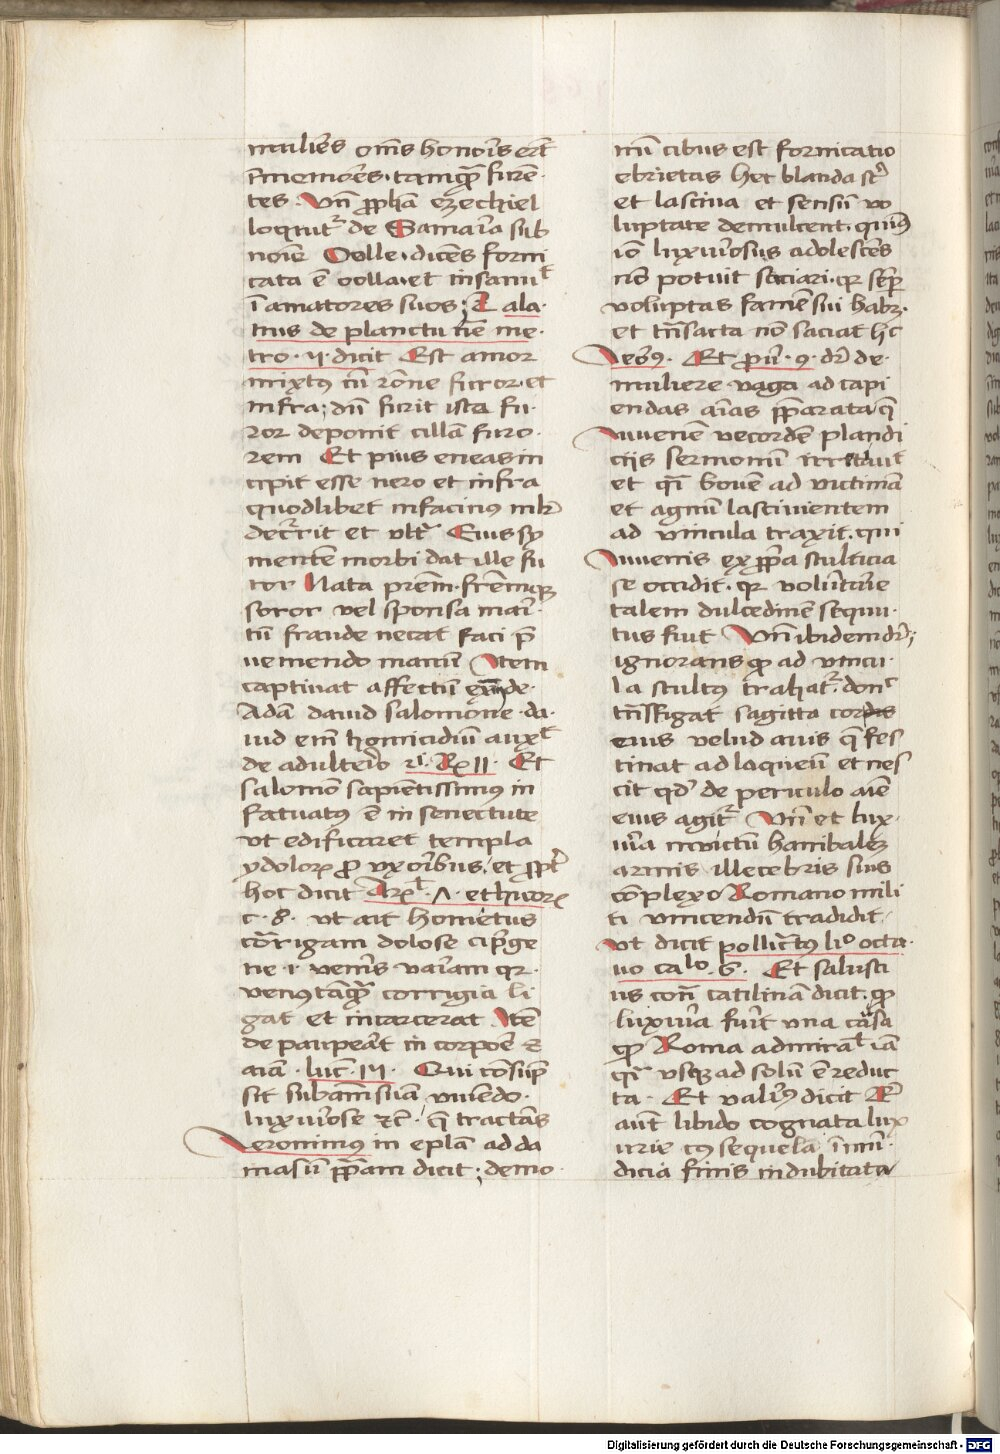 mulieṝs om̄s honoīs er̄t
īmemores. tamq̄ꝫ furē
tes. Vn̄ ꝓph̄a ezechiel
loquit̄ de Samaīa sub
noīe Oolle. dicēs forni
cata ē oolla. et insaniuᵗ
ī amatores suos; Et ala
nus de planctu nē me
tro. ij. dicit Est amor
mixtꝰ cū rōne furor. et
infra; dū furit ista fu
ror deponit cillā furo
rem Et pius eneas in
cipit esse nero et infra
quodlibet in facinus
et vlt̄ Eius
mentē morbi dat ille fu
ror Nata prēm. fr̄em
soror vel sponsa maī
tū fraude necat faci p̄
ueniendo manū Item
captiuat affectū de.
Adā dauid salomone. da
uid em̄ homicidiū auxᵗ
de adulteīo 2ⁱ. Rꝫ 11. Et
salomō sapientissimꝰ in
fatuatꝰ ē in senectute
vt edificaret templa
ydoloꝝ ꝓ vxoībus. et ꝓpt̄
hoc dicit Arꝫᵗ. 7. ethicoꝝ
c. 8. vt ait homerus
cōrigam dolose cip̄ge
ne. i. veneīs vaīam qꝛ.
venꝰ tāqꝫ corrigia li
gat et incarcerat Itē
de paupeāt in corpōe et
aīam. luc̄. 15. Qui cōsūp
sit substam̄ suam viuendo
luxuīose ⁊c̄. q̄ tractās
Ieronimus in eplā ad da
masū ꝓp̄am dicit; demo
niū cibus est fornicatio
ebrietas hec blanda st̄
et lasciua et sensū vo
luptate demulcent. quīꝰ
iō luxuīosus adolescēs
nō potuit saciari. qꝛ sꝑ
voluptas famē sui habꝫ.
et trāsacta nō saciat hc̄
Ieroꝰ. Et ꝓū. 9. dr̄ de
muliere vaga ad capi
endas aīas p̄parata. q̄
iuuenē vecordē plandi
ciis sermonū irritauiᵗ
et q̄i bouē ad victimā
et agnū lasciuientem
ad vincula traxit. qui
iuuenis ex ꝓp̄a stulticia
se occidit. qꝛ volūtarie
talem dulcedinē sequu
tus fiut Vn̄ ibidem dr̄;
ignorans ꝙ ad vincu
la stultꝰ trahat̄. donᶜ
trāsfigat sagitta cordis
eius velud auis q̄ fes
tinat ad laqueū et nes
cit qꝺ de periculo aīe
eius agit̄ Vn̄ et lux
uīa inuictū hanibalē
armis illecebris suis
cōplexo Romano mili
ti vincendū tradidit
vt dicit pollicᵗꝰ liᵒ octa
uo caᵒ. 6. Et salusti
us cōn̄ catilinā dicit. ꝙ
luxuīa fuīt vna cāsa
ꝙ Roma admiraᵇ iā
q̄i vsqꝫ ad solū ē reduc
ta. Et valīꝰ dicit Er̄
aut̄ libido cognata lux
urie cꝰ sequela īnnū
dicia finis indubitata